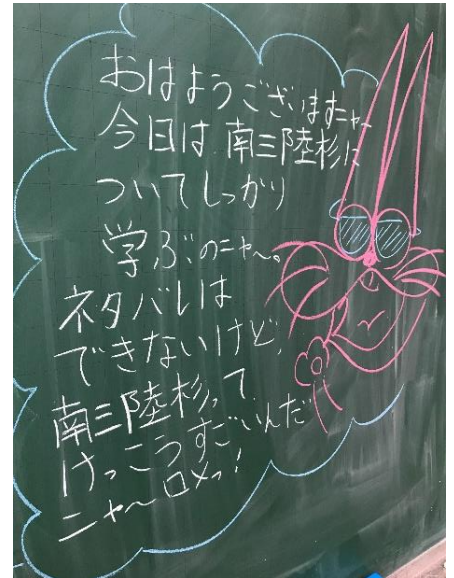 おはようございますニャー
今日は南三陸杉に
ついてしっかり
学ぶのニャ〜。
ネタバレは
できないけど、
南三陸杉って、
けっこうすごいんだ
ニャ〜ロメっ!